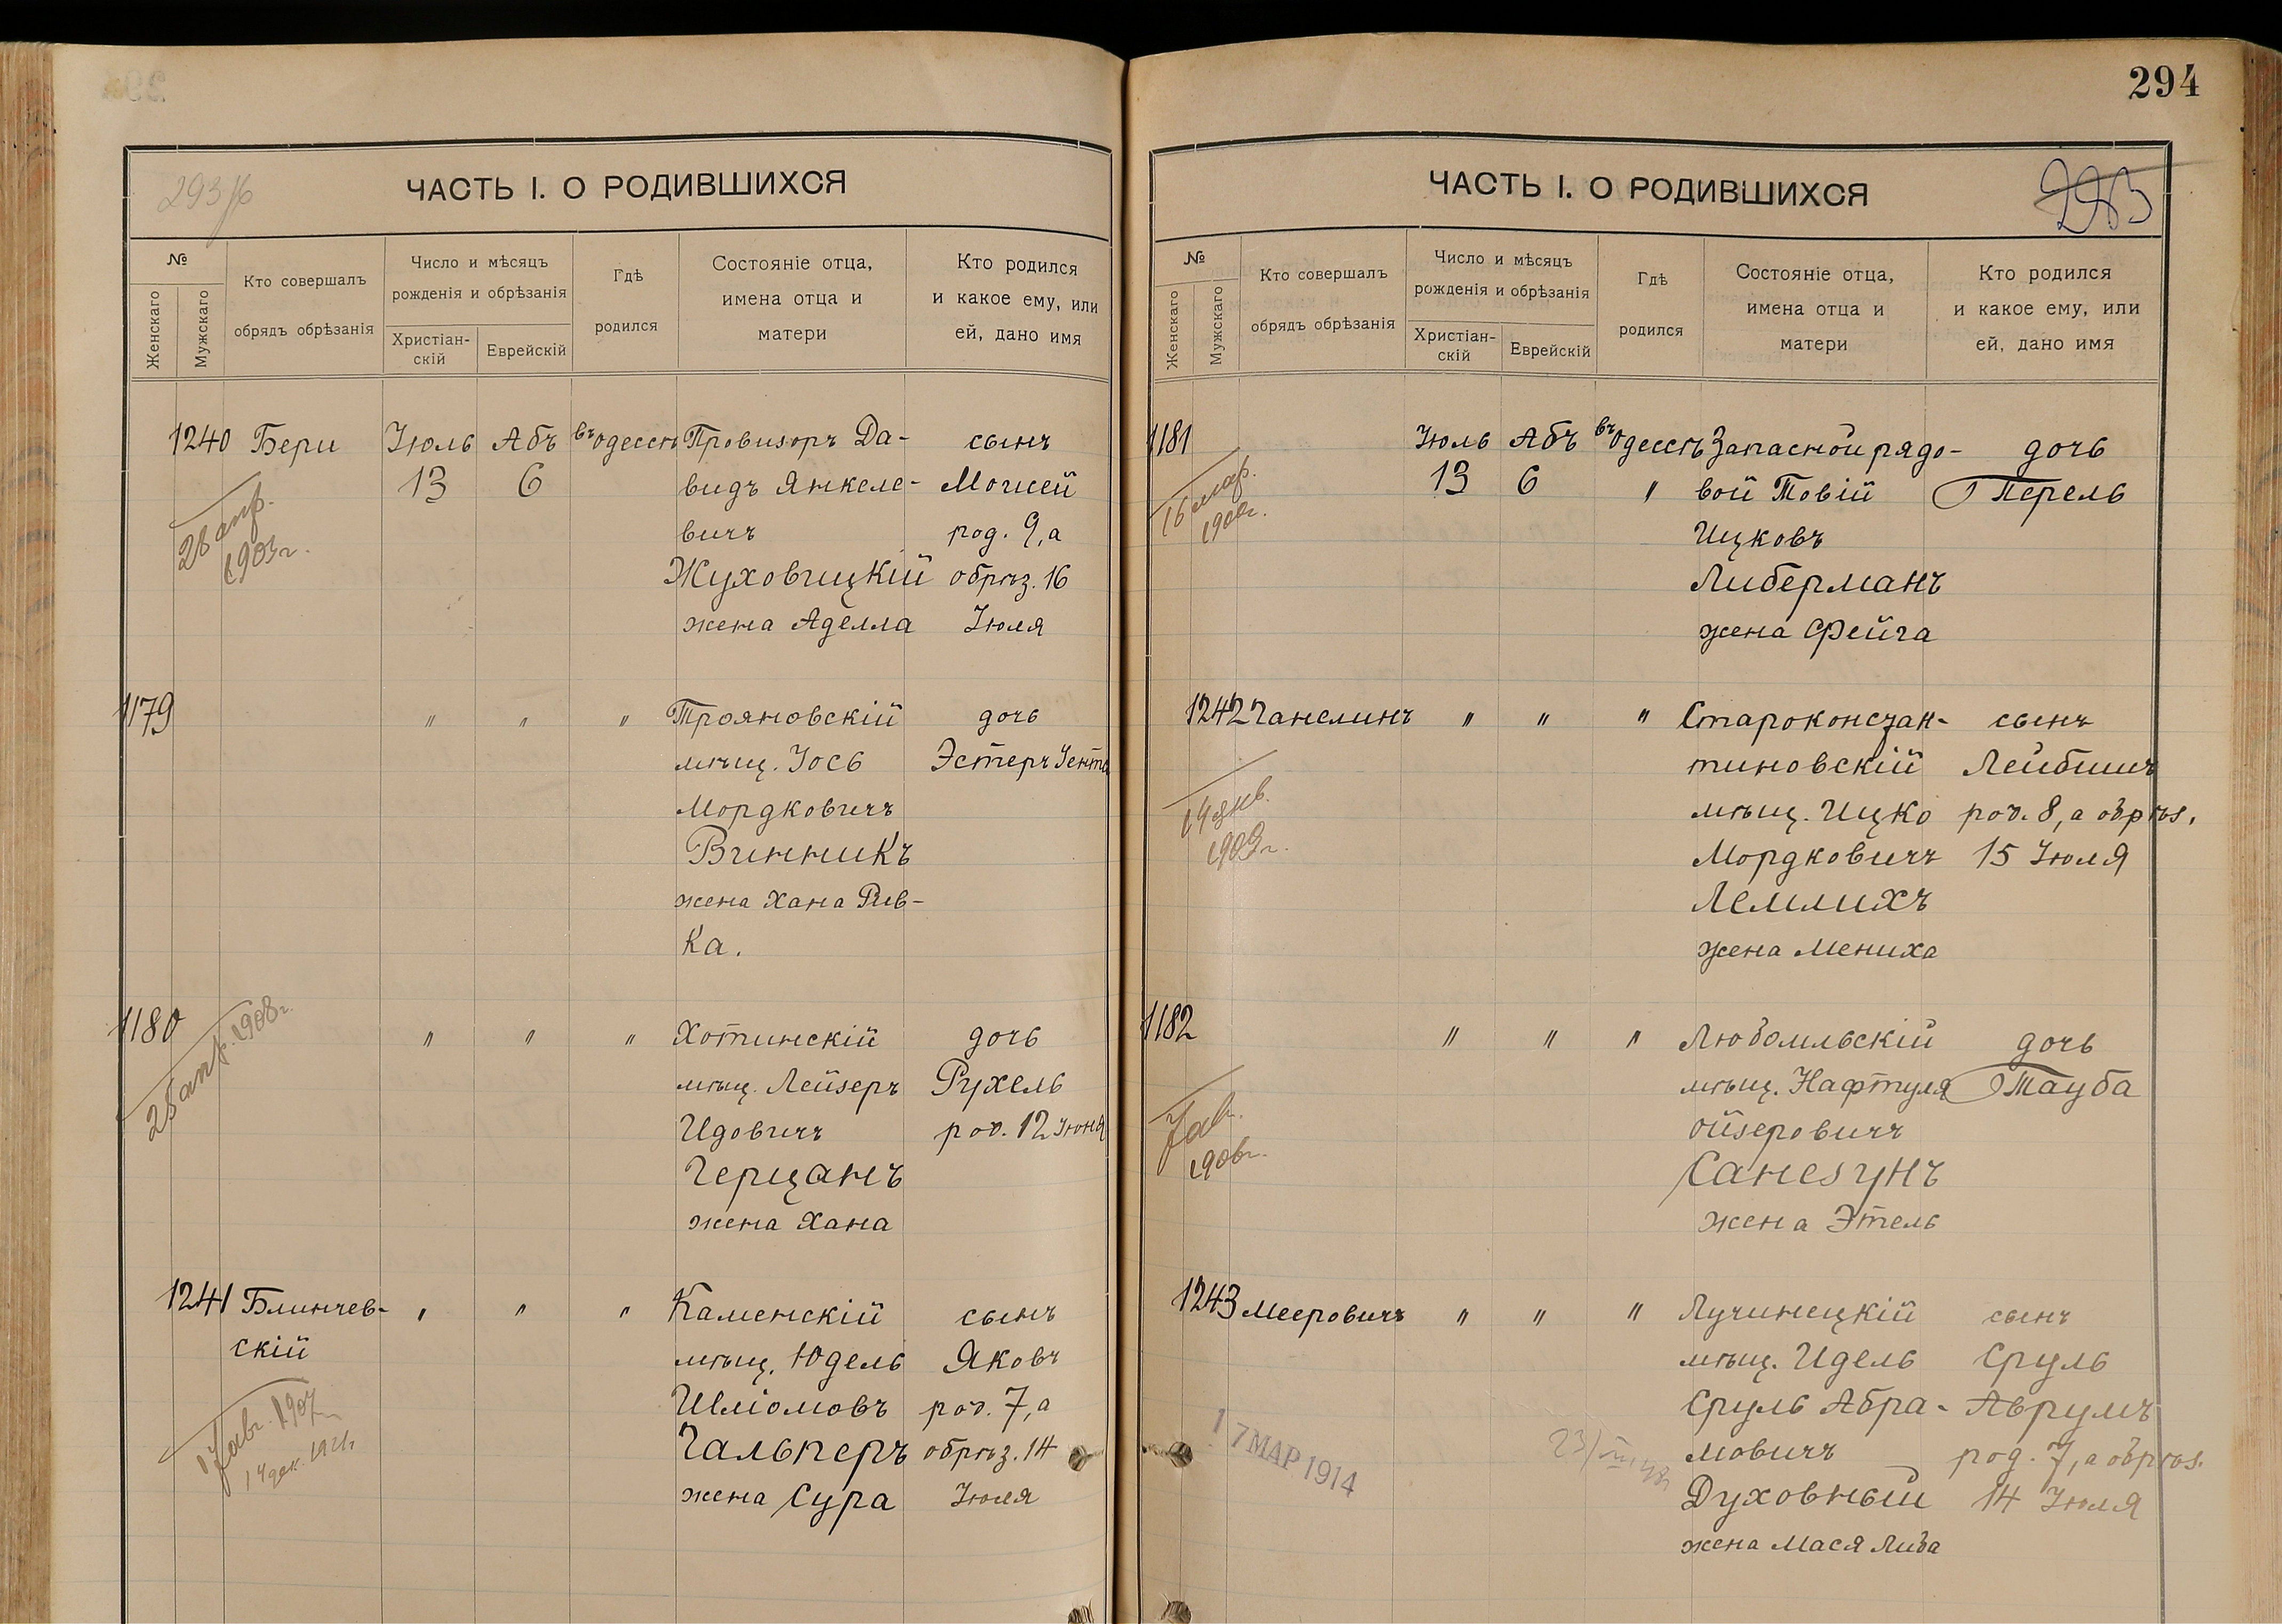 294
293 об
ЧАСТЬ I. О РОДИВШИХСЯ
№
Женскаго
Мужскаго
Кто совершалъ
обрядъ обрѣзанія
Число и мѣсяцъ
рожденія и обрѣзанія
Христіан-
скій
Еврейскій
Гдѣ
родился
Состояніе отца,
имена отца и
матери
Кто родился
и какое ему, или
ей, дано имя
1240 Бери Іюль Абъ въ Одессѣ Провизоръ Да- сынъ
13 6 видъ Янкеле- Моисей
28 апр. вичъ род. 9, а
1903 г. Жуховицкій обрѣз. 16
жена Аделла Іюля
1179 " " " Трояновскій дочь
мѣщ. Іось Эстеръ Іента
Мордковичъ
Винникъ
жена Хана Рив-
ка.
1180 " " " Хотинскій дочь
28 апр. 1908 г. мѣщ. Лейзеръ Рухель
Идовичъ род. 12 Іюня
Герцанъ
жена Хана
1241 Блинчев- " " " Каменскій сынъ
скій мѣщ. Юдель Яковъ
17 авг. 1907 Шліомовъ род. 7, а
14 дек. Гальперъ обрѣз. 14
жена Сура Іюля
ЧАСТЬ I. О РОДИВШИХСЯ
293
№
Женскаго
Мужскаго
Кто совершалъ
обрядъ обрѣзанія
Число и мѣсяцъ
рожденія и обрѣзанія
Христіан-
скій
Еврейскій
Гдѣ
родился
Состояніе отца,
имена отца и
матери
Кто родился
и какое ему, или
ей, дано имя
1181 Іюль Абъ въ Одессѣ Запасной рядо- дочь
13 6 " вой Товій Перель
16 мар. Ицковъ
Либерманъ
жена Фейга
1242 Ганелинъ " " " Староконстан- сынъ
тиновскій Лейбишъ
мѣщ. Ицко род. 8, а обрѣз.
Мордковичъ 15 Іюля
Лемлихъ
жена Мениха
1182 " " " Любомльскій дочь
мѣщ. Нафтуля Тауба
Ойзеровичъ
Санезунъ
жена Этель
1243 Мееровичъ " " " Лучинецкій сынъ
мѣщ. Идель Сруль
Сруль Абра- Аврумъ
17 МАР 1914 мовичъ род. 7, а обрѣз.
Духовный 14 Іюля
жена Мася Либа